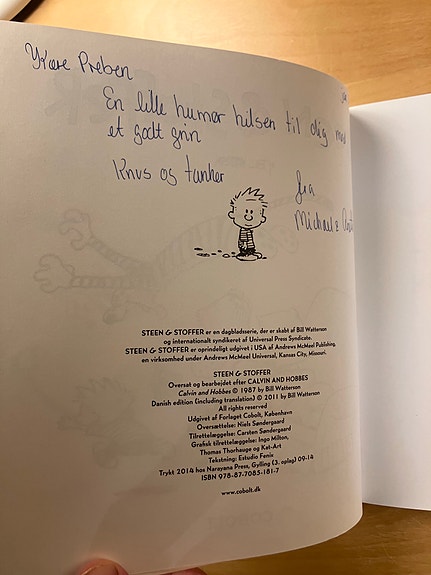 Kære Preben
En lille humør hilsen til dig med
et godt grin
Knus og tanker
fra
Michael &
STEEN & STOFFER er en dagbladsserie, der er skabt af Bill Watterson
og internationalt syndikeret af Universal Press Syndicate.
STEEN & STOFFER er oprindeligt udgivet i USA af Andrews McMeel Publishing,
en virksomhed under Andrews McMeel Universal, Kansas City, Missouri.
STEEN & STOFFER
Oversat og bearbejdet efter CALVIN AND HOBBES
Calvin and Hobbes © 1987 by Bill Watterson
Danish edition (including translation) © 2011 by Bill Watterson
All rights reserved
Udgivet af Forlaget Cobolt, København
Oversættelse: Niels Søndergaard
Tilrettelæggelse: Carsten Søndergaard
Grafisk tilrettelæggelse: Ingo Milton,
Thomas Thorhauge og Kat-Art
Tekstning: Estudio Fenix
Trykt 2014 hos Narayana Press, Gylling (3. oplag) 09-14
ISBN 978-87-7085-181-7
www.cobolt.dk